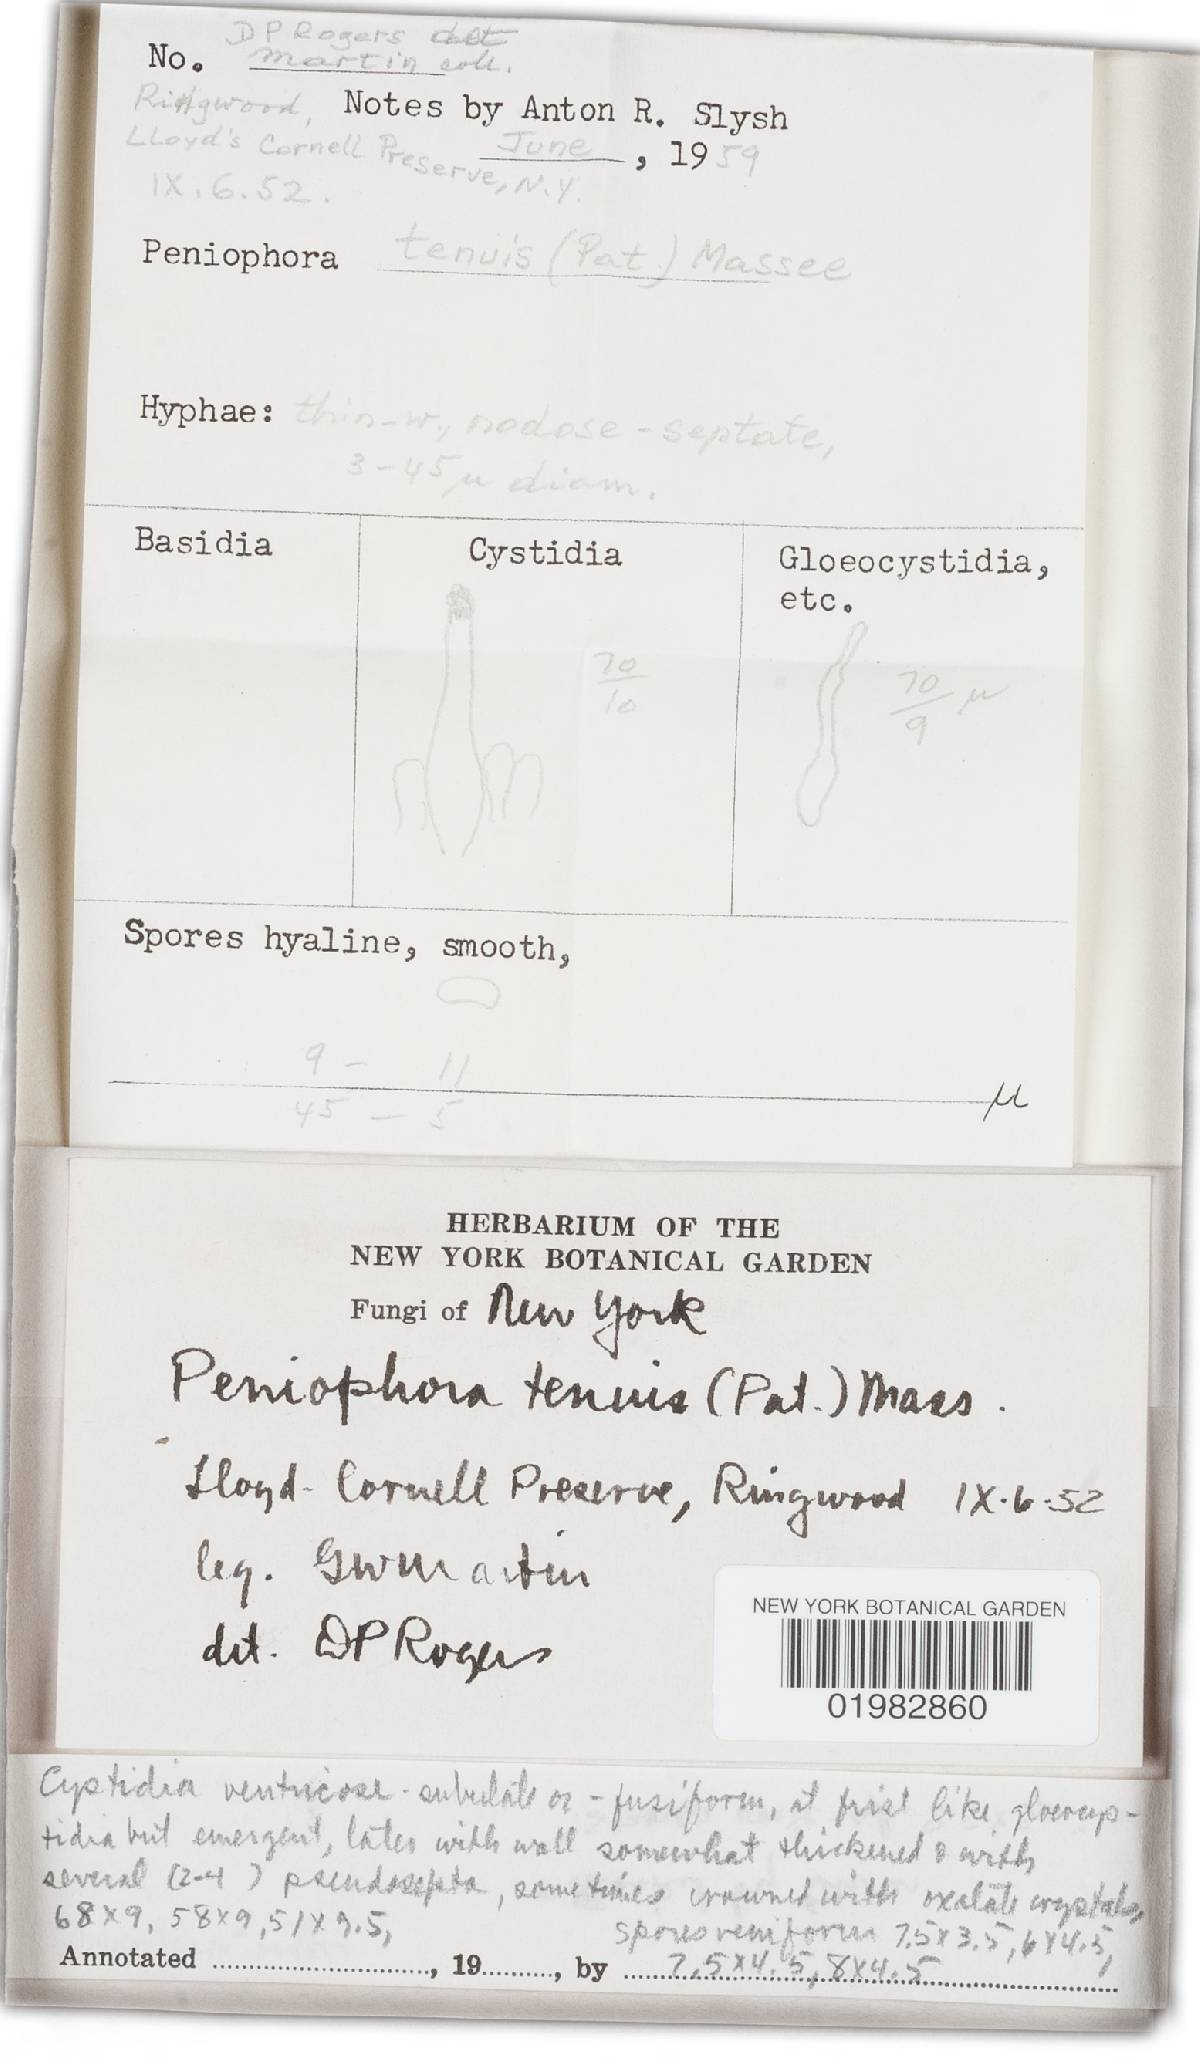 DP Rogers det
No. Martin coll.
Ringwood, Notes by Anton R. Slysh
Lloyd's Cornell Preserve, N.Y.
June, 1959
IX.6.52.
Peniophora tenuis (Pat.) Massee
Hyphae: thin-w., nodose-septate,
3-45 μ diam.
Basidia
Cystidia
Gloeocystidia,
etc.
70
10
70
9 μ
Spores hyaline, smooth,
9 - 11
45 - 5
μ
HERBARIUM OF THE
NEW YORK BOTANICAL GARDEN
Fungi of New York
Peniophora tenuis (Pat.) Mass.
Lloyd-Cornell Preserve, Ringwood IX.6.52
leg. GWMartin
det. DPRogers
NEW YORK BOTANICAL GARDEN
01982860
Cystidia ventricose-subulate or -fusiform, at first like gloeocys-
tidia but emergent, later with wall somewhat thickened & with
several (2-4) pseudosepta, sometimes crowned with oxalate crystals,
68x9, 58x9, 51x9.5, spores reniform 7.5x3.5, 6x4.5,
Annotated ............, 19......, by 7.5x4.5, 8x4.5